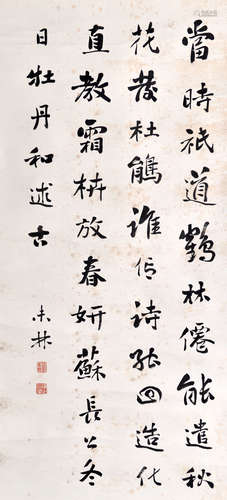 當時祇道鶴林僊能遣秋
花發杜鵑誰信詩能回造化
直教霜枿放春妍蘇長公冬
日牡丹和述古
未林